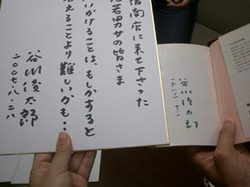 店に来て下さった
老若男女の皆さま
いかけることは、もしかすると
えることより難しいかも・・
谷川俊太郎
二〇〇七・八・二八
谷川俊太郎